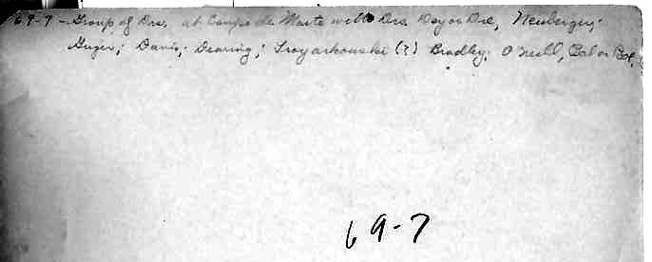 69-7 - Group of Drs. at Campo de Marte with Drs. Day or Dre, Neuberger;
Guger; Davis; Dearing; Troyarkouski (?) Bradley; O'Neill, Bal or Bol,
69-7